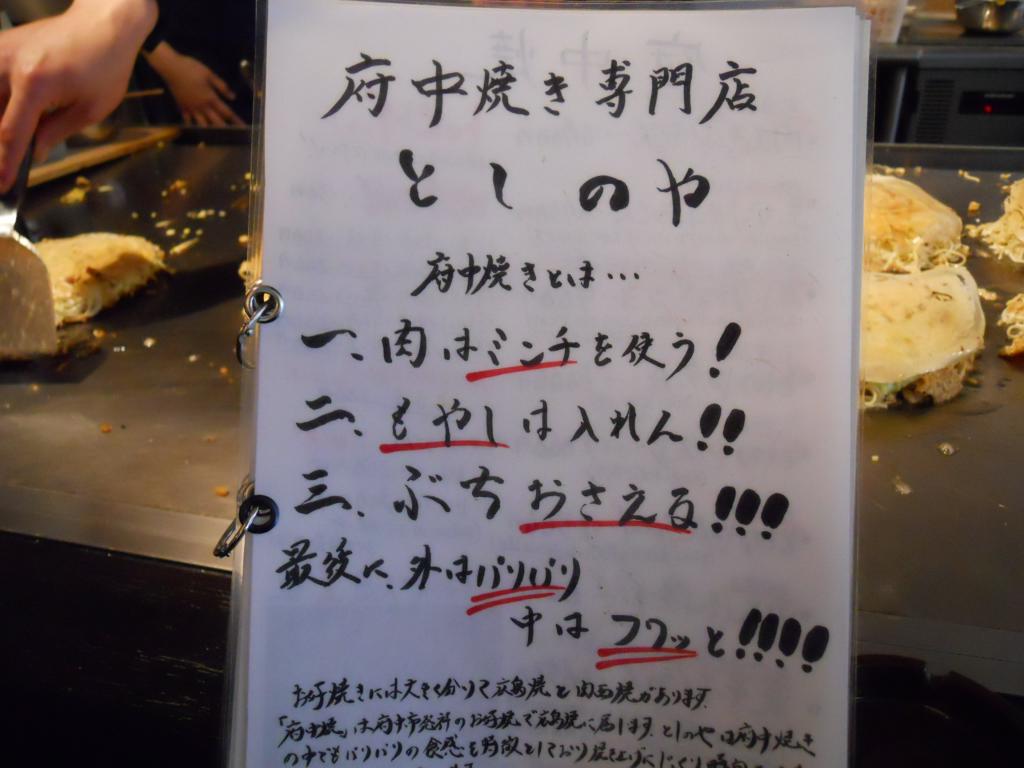 府中焼き専門店
としのや
府中焼きとは…
一、肉はミンチを使う!
二、もやしは入れん!!
三、ぶちおさえる!!!
最後に、外はバリバリ
中はフワッと!!!!
お好焼きには大きく分けて広島焼と関西焼があります
「府中焼」は府中市発祥のお好焼で広島焼に属します。としのやは府中焼き
の中でもバリバリの食感を特徴としており焼き上げにじっくり時間